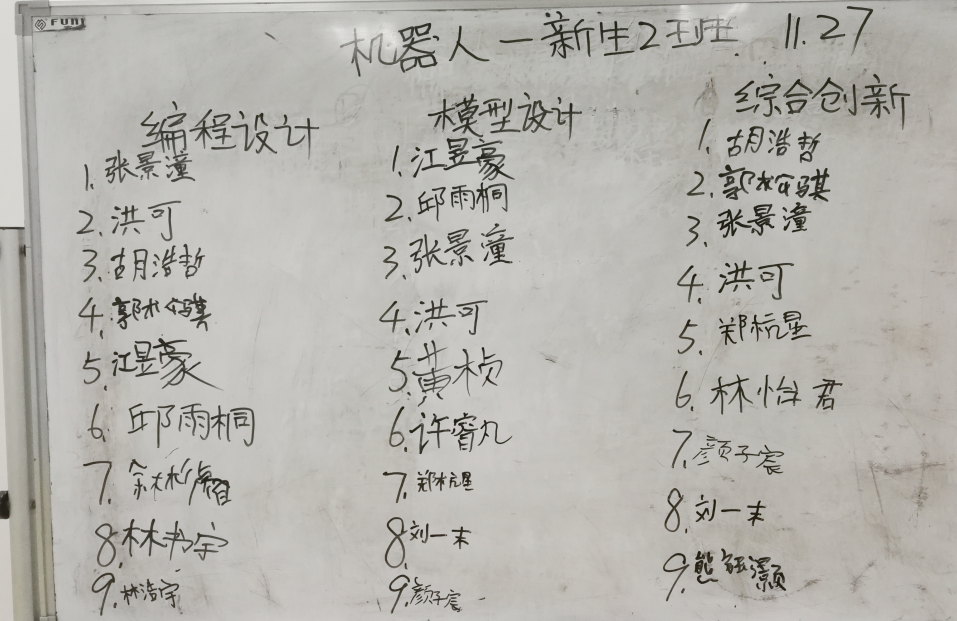 FUNJ
机器人一新生2班 11.27
编程设计
1. 张景潼
2. 洪可
3. 胡浩哲
4. 郭骐
5. 江昱豪
6. 邱雨桐
7. 余彬
8. 林书宇
9. 林浩宇
模型设计
1. 江昱豪
2. 邱雨桐
3. 张景潼
4. 洪可
5. 黄桢
6. 许睿丸
7. 郑杭星
8. 刘一末
9. 颜子宸
综合创新
1. 胡浩哲
2. 郭骐
3. 张景潼
4. 洪可
5. 郑杭星
6. 林怡君
7. 颜子宸
8. 刘一末
9. 熊灏